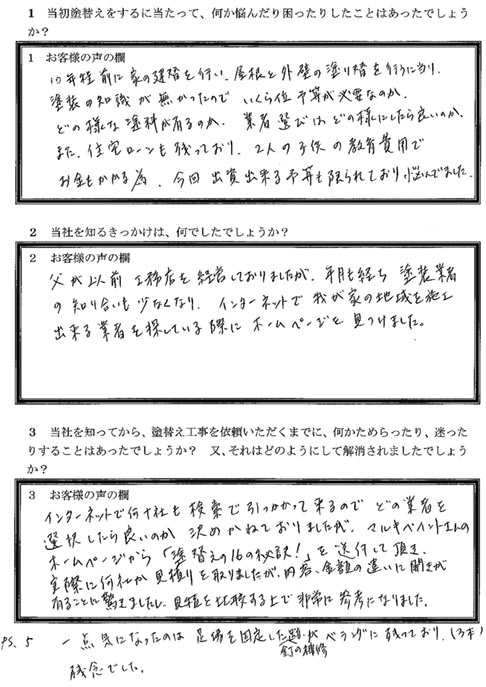 1 当初塗替えをするに当たって、何か悩んだり困ったりしたことはあったでしょう
か？
1 お客様の声の欄
10年程前に家の建替を行い、屋根と外壁の塗り替を行うに当り、
塗装の知識が無かったので いくら位予算が必要なのか、
どの様な塗料が有るのか、業者選びはどの様にしたら良いのか、
また、住宅ローンも残っており、2人の子供の教育費用で
お金もかかる為、今回出費出来る予算も限られており悩んでました。
2 当社を知るきっかけは、何でしたでしょうか？
2 お客様の声の欄
父が以前工務店を経営しておりましたが、年月も経ち 塗装業者
の知り合いも少なくなり、インターネットで我が家の地域を施工
出来る業者を探している際にホームページを見つけました。
3 当社を知ってから、塗替え工事を依頼いただくまでに、何かためらったり、迷った
りすることはあったでしょうか？ 又、それはどのようにして解消されましたでしょう
か？
3 お客様の声の欄
インターネットで何十社も検索で引っかかって来るので どの業者を
選択したら良いのか 決めかねておりましたが、マルキペイントさんの
ホームページから「塗替えの16の秘訣！」を送付して頂き、
実際に何社か見積りを取りましたが、内容、金額の違いに開きが
有ることに驚きましたし、見積を比較する上で非常に参考になりました。
PS. 5 一点気になったのは 足場を固定した がベランダに残っており、(3ヶ所)
釘の補修
残念でした。